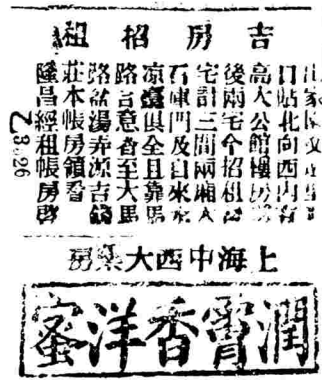 吉房招租
高大公館樓房
後兩宅今招租
宅計三間兩廂
石庫門及自來水
凉臺俱全且靠馬
路合意者至大馬
路盆湯弄源吉錢
莊本帳房領看
隆昌經租帳房啓
Z 3.8.26
上海中西大藥房
潤霄香洋蜜